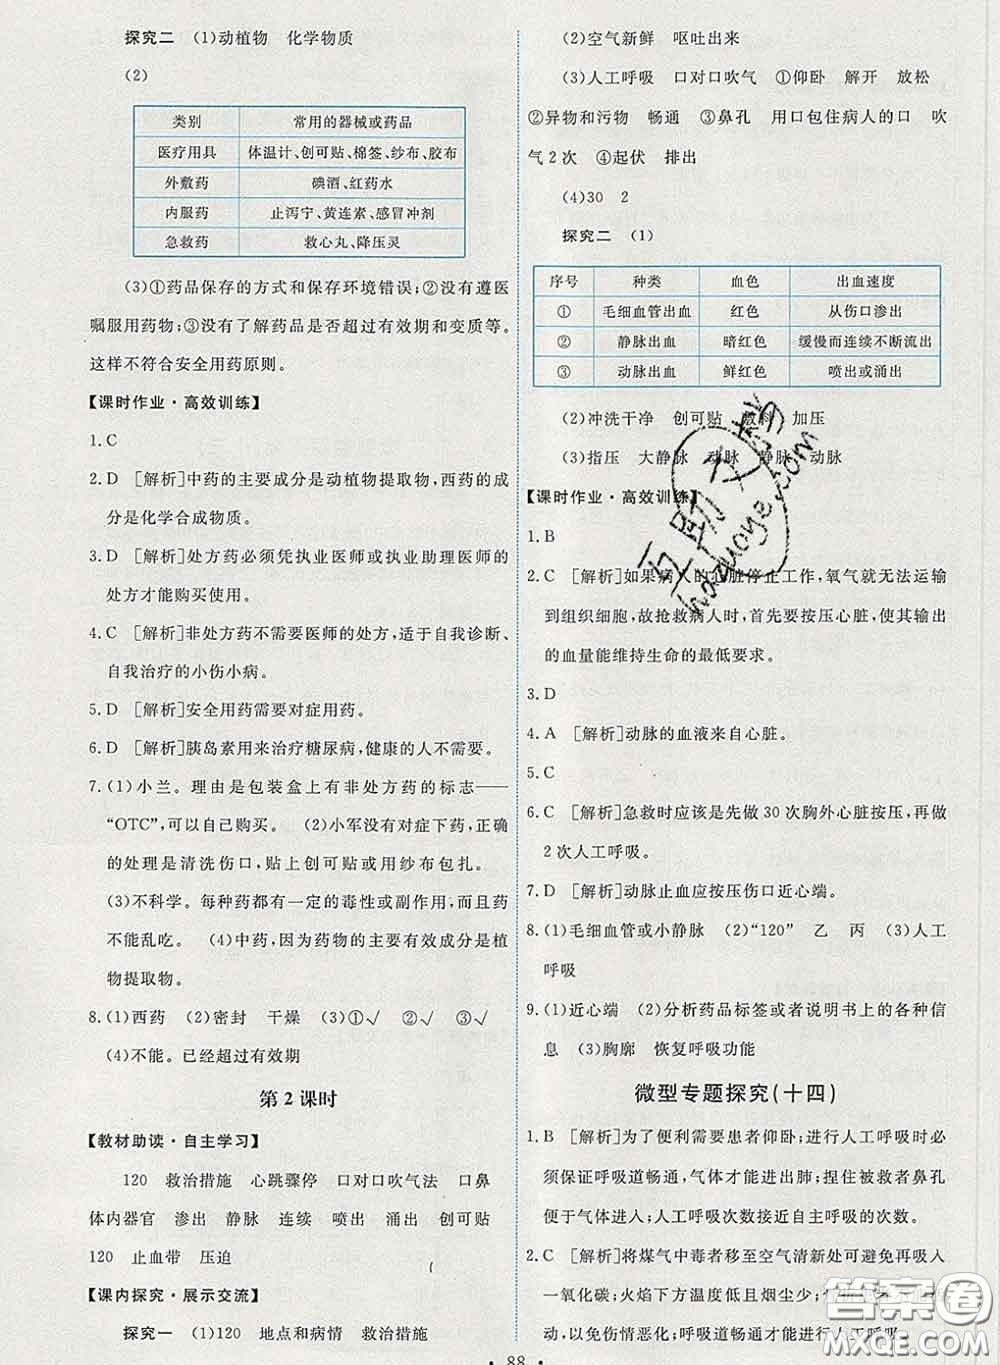 探究二　(1)动植物　化学物质
(2)
类别　常用的器械或药品
医疗用具　体温计、创可贴、棉签、纱布、胶布
外敷药　碘酒、红药水
内服药　止泻宁、黄连素、感冒冲剂
急救药　救心丸、降压灵
(3)①药品保存的方式和保存环境错误;②没有遵医
嘱服用药物;③没有了解药品是否超过有效期和变质等。
这样不符合安全用药原则。
【课时作业·高效训练】
1.C
2.D　[解析]中药的主要成分是动植物提取物,西药的成
分是化学合成物质。
3.D　[解析]处方药必须凭执业医师或执业助理医师的
处方才能购买使用。
4.C　[解析]非处方药不需要医师的处方,适于自我诊断、
自我治疗的小伤小病。
5.D　[解析]安全用药需要对症用药。
6.D　[解析]胰岛素用来治疗糖尿病,健康的人不需要。
7.(1)小兰。理由是包装盒上有非处方药的标志——
“OTC”,可以自己购买。　(2)小军没有对症下药,正确
的处理是清洗伤口,贴上创可贴或用纱布包扎。
(3)不科学。每种药都有一定的毒性或副作用,所以药
不能乱吃。　(4)中药,因为药物的主要有效成分是植
物提取物。
8.(1)西药　(2)密封　干燥　(3)①√　②√　③√
(4)不能。已经超过有效期
第2课时
【教材助读·自主学习】
120　救治措施　心跳骤停　口对口吹气法　口鼻
体内器官　渗出　静脉　连续　喷出　涌出　创可贴
120　止血带　压迫
【课内探究·展示交流】
探究一　(1)120　地点和病情　救治措施
(2)空气新鲜　呕吐出来
(3)人工呼吸　口对口吹气　①仰卧　解开　放松
②异物和污物　畅通　③鼻孔　用口包住病人的口　吹
气2次　④起伏　排出
(4)30　2
探究二　(1)
序号　种类　血色　出血速度
①　毛细血管出血　红色　从伤口渗出
②　静脉出血　暗红色　缓慢而连续不断流出
③　动脉出血　鲜红色　喷出或涌出
(2)冲洗干净　创可贴　敷料　加压
(3)指压　大静脉　动脉　静脉　动脉
【课时作业·高效训练】
1.B
2.C　[解析]如果病人的心脏停止工作,氧气就无法运输
到组织细胞,故抢救病人时,首先要按压心脏,使其输出
的血量能维持生命的最低要求。
3.D
4.A　[解析]动脉的血液来自心脏。
5.C
6.C　[解析]急救时应该是先做30次胸外心脏按压,再做
2次人工呼吸。
7.D　[解析]动脉止血应按压伤口近心端。
8.(1)毛细血管或小静脉　(2)“120”　乙　丙　(3)人工
呼吸
9.(1)近心端　(2)分析药品标签或者说明书上的各种信
息　(3)胸廓　恢复呼吸功能
微型专题探究(十四)
1.B　[解析]为了便利需要患者仰卧;进行人工呼吸时必
须保证呼吸道畅通,气体才能进出肺;捏住被救者鼻孔
便于气体进入;人工呼吸次数接近自主呼吸的次数。
2.C　[解析]将煤气中毒者移至空气清新处可避免再吸入
一氧化碳;火焰下方温度低且烟尘少;
以免伤情恶化;呼吸道畅通才能进行人工呼吸。
·88·
互助文档
huzuoye.com
答案圈
MXQE.COM